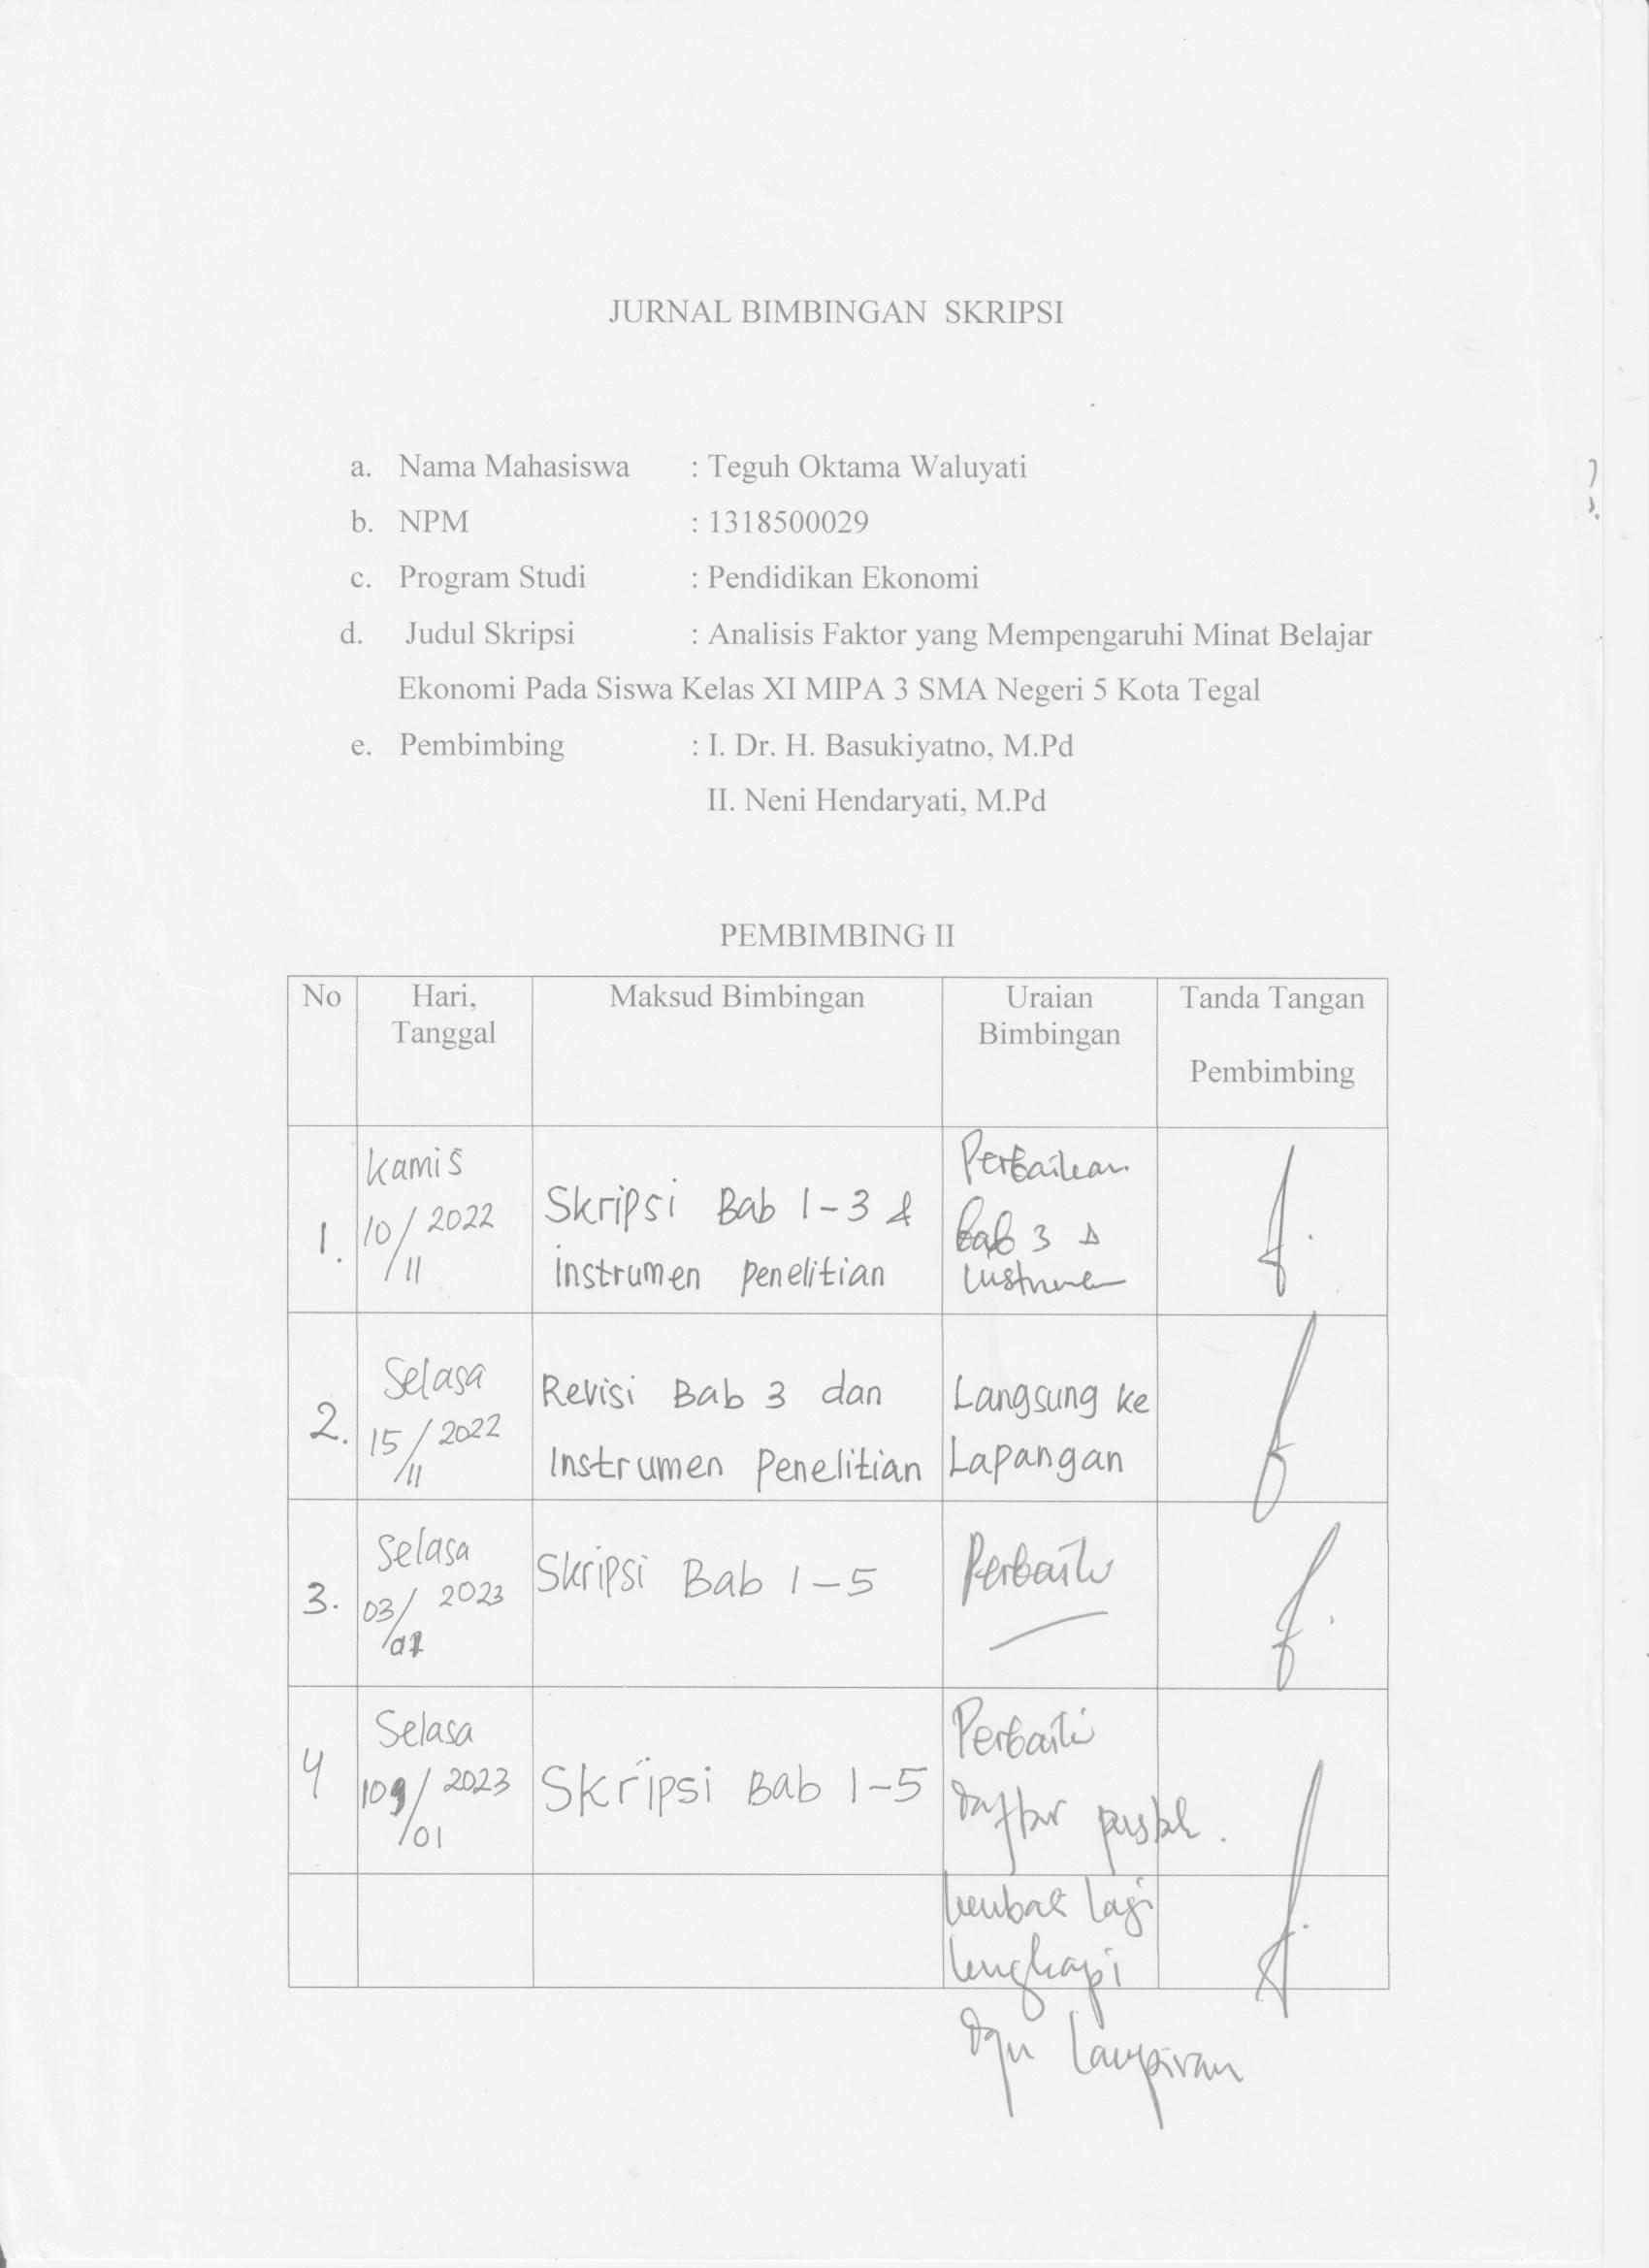 JURNAL BIMBINGAN SKRIPSI
a. Nama Mahasiswa : Teguh Oktama Waluyati
b. NPM : 1318500029
c. Program Studi : Pendidikan Ekonomi
d. Judul Skripsi : Analisis Faktor yang Mempengaruhi Minat Belajar
Ekonomi Pada Siswa Kelas XI MIPA 3 SMA Negeri 5 Kota Tegal
e. Pembimbing : I. Dr. H. Basukiyatno, M.Pd
II. Neni Hendaryati, M.Pd
PEMBIMBING II
No Hari, Maksud Bimbingan Uraian Tanda Tangan
Tanggal Bimbingan
Pembimbing
1. Kamis
10/11 2022
Skripsi Bab 1-3 &
instrumen penelitian
Perbaikan
bab 3 &
Instrumen
2. Selasa
15/11 2022
Revisi Bab 3 dan
Instrumen Penelitian
Langsung ke
Lapangan
3. Selasa
03/01 2023
Skripsi Bab 1-5
Perbaiki
4 Selasa
/01 2023
Skripsi Bab 1-5
Perbaiki
Daftar
lagi
lengkapi
dgn Lampiran